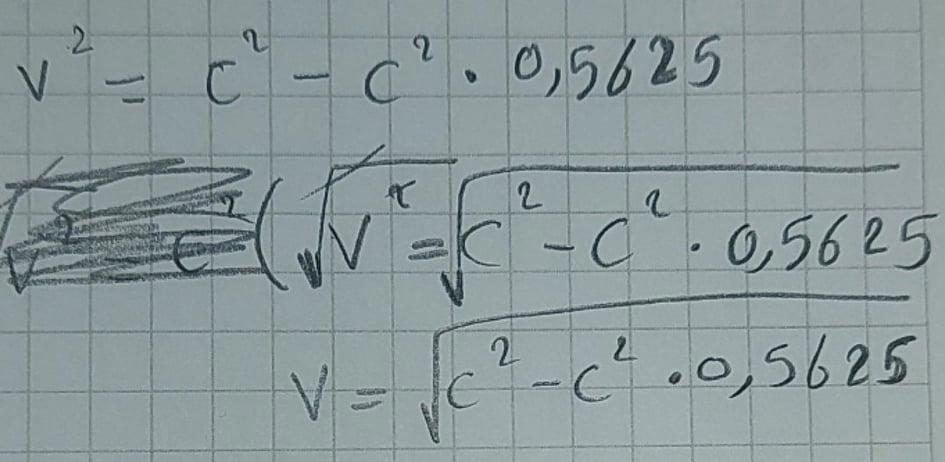 v² = c² - c² · 0,5625
(√v² = √c² - c² · 0,5625
v = √c² - c² · 0,5625